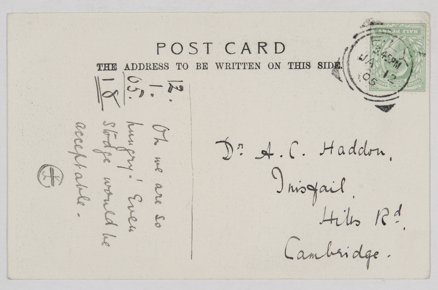 POST CARD
THE ADDRESS TO BE WRITTEN ON THIS SIDE.
12.
1.
05.
18
Oh we are so
hungry! Even
Stodge would be
acceptable.
Dr A. C. Haddon,
Inisfail,
Hills Rd,
Cambridge.
JA 12
05